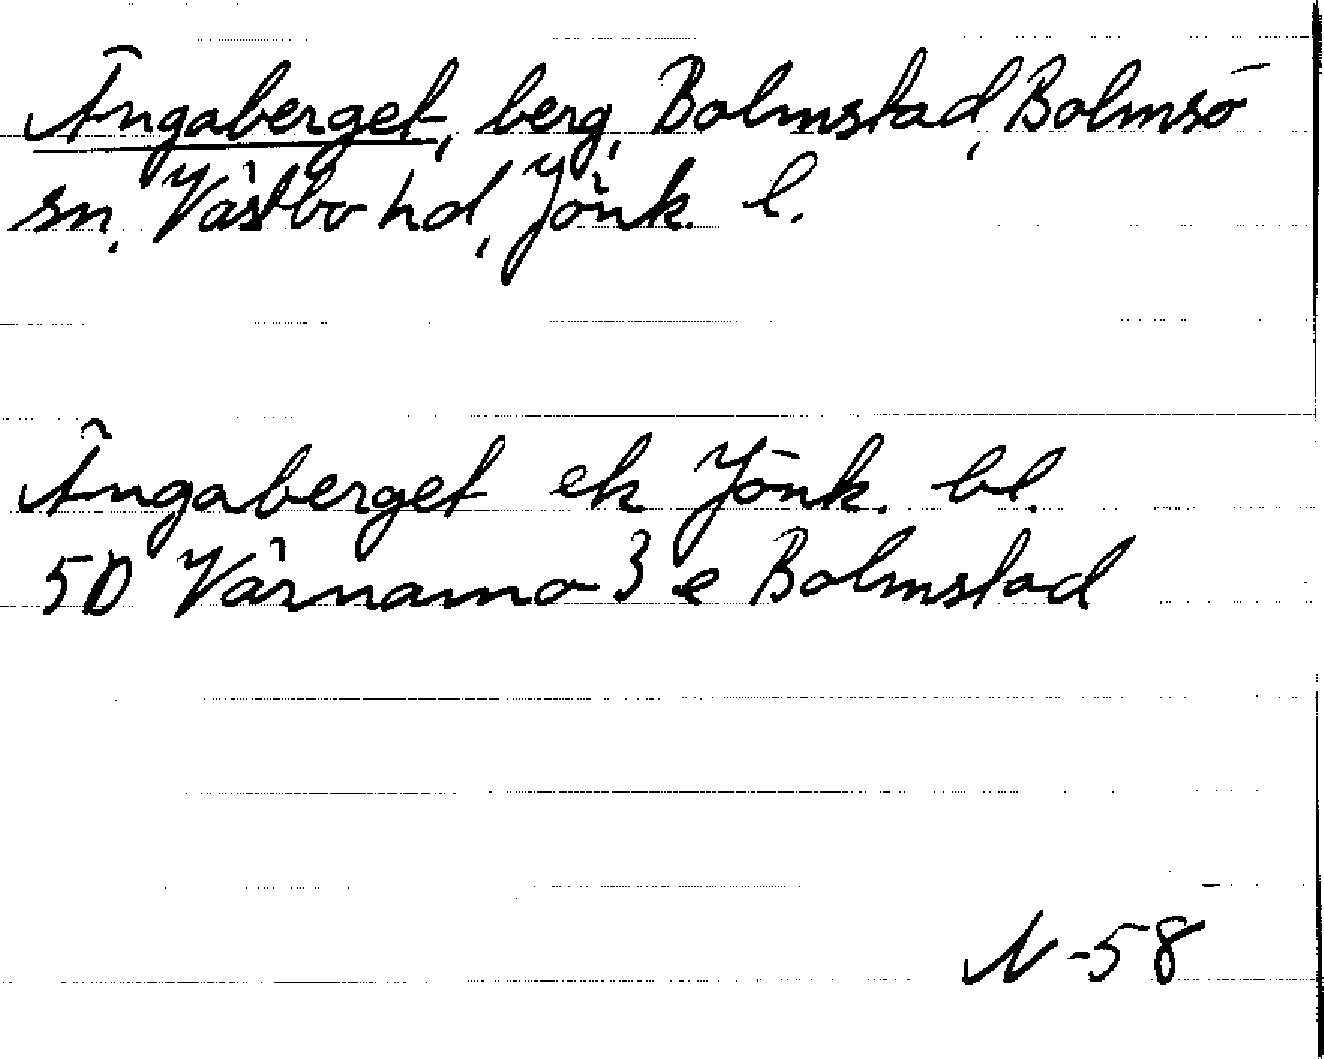 Ängaberget, berg, Bolmstad, Bolmsö
sn, Västbo hd, Jönk. l.
Ängaberget ek Jönk. bl.
5D Värnamo 3 e Bolmstad
N-58